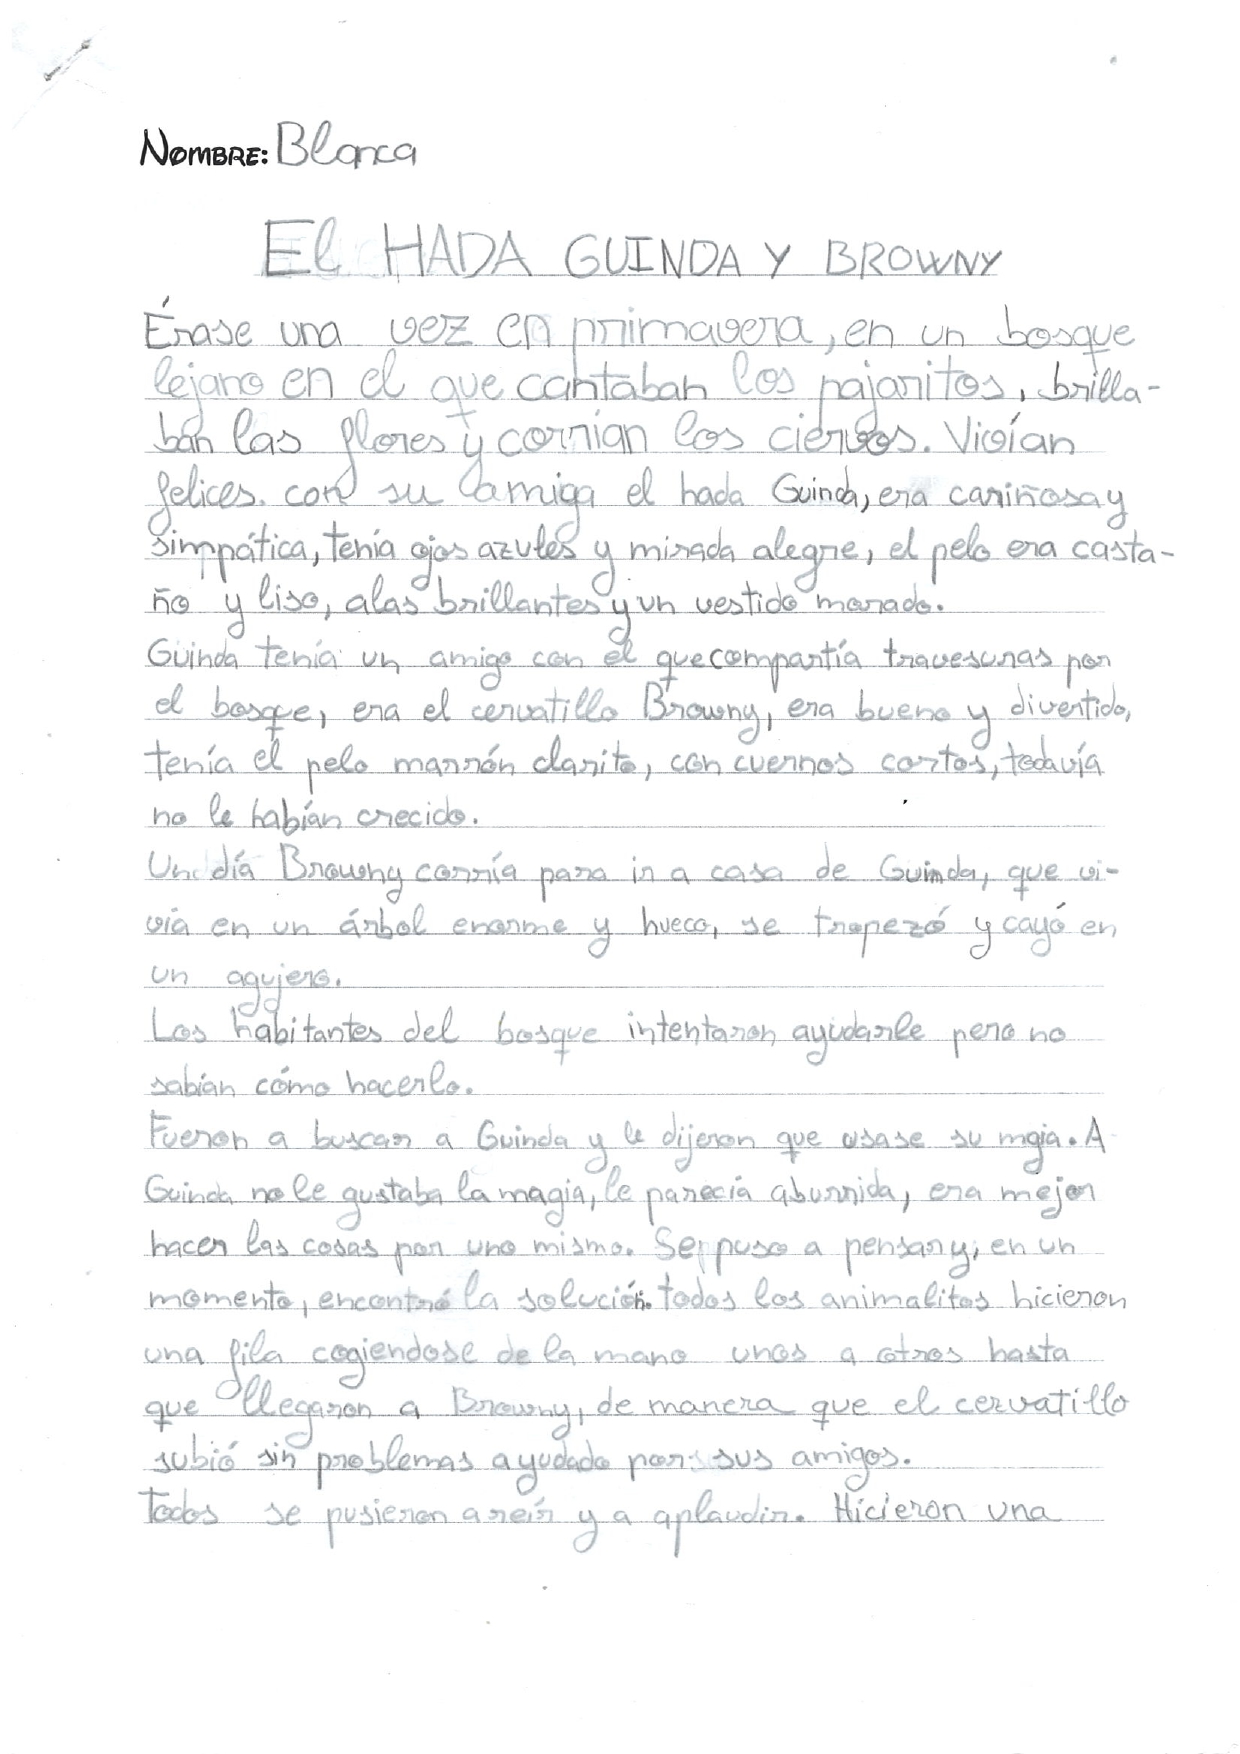 NOMBRE: Blanca
El HADA GUINDA Y BROWNY
Érase una vez en primavera, en un bosque
lejano en el que cantaban los pajaritos, brilla-
ban las flores y corrían los ciervos. Vivían
felices. con su amiga el hada Guinda, era cariñosa y
simpática, tenía ojos azules y mirada alegre, el pelo era casta-
ño y liso, alas brillantes y un vestido morado.
Guinda tenía un amigo con el que compartía travesuras por
el bosque, era el cervatillo Browny, era bueno y divertido,
tenía el pelo marrón clarito, con cuernos cortos, todavía
no le habían crecido.
Un día Browny corría para ir a casa de Guinda, que vi-
vía en un árbol enorme y hueco, se tropezó y cayó en
un agujero.
Los habitantes del bosque intentaron ayudarle pero no
sabían cómo hacerlo.
Fueron a buscar a Guinda y le dijeron que usase su mgia. A
Guinda no le gustaba la magia, le parecía aburrida, era mejor
hacer las cosas por uno mismo. Se puso a pensar y, en un
momento, encontró la solución. todos los animalitos hicieron
una fila cogiendose de la mano unos a otros hasta
que llegaron a Browny, de manera que el cervatillo
subió sin problemas ayudado por sus amigos.
Todos se pusieron a reír y a aplaudir. Hicieron una